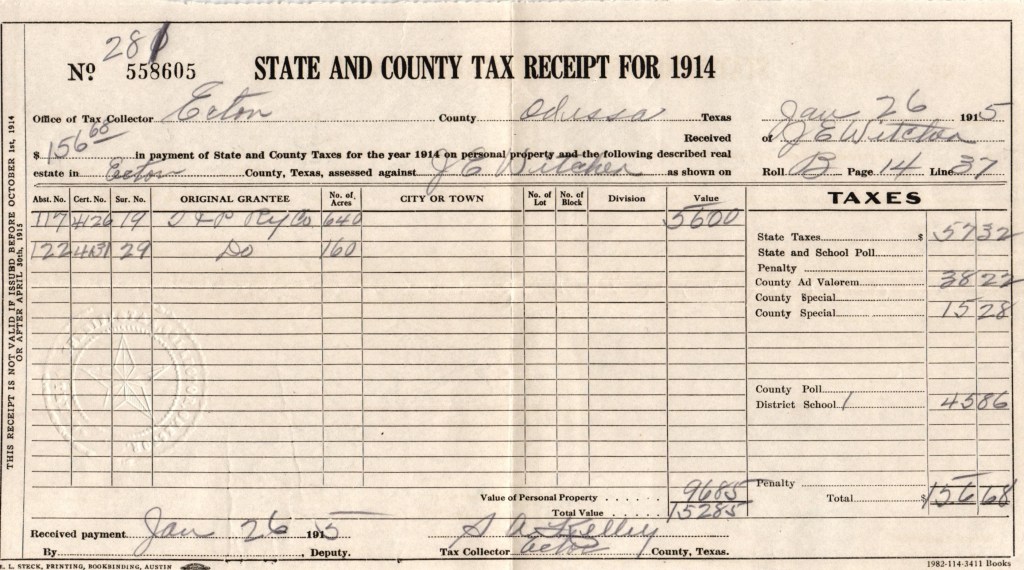 281
No 558605 STATE AND COUNTY TAX RECEIPT FOR 1914
Office of Tax Collector Ector County Odessa Texas Jan 26 1915
Received of J E Witcher
$156 68 in payment of State and County Taxes for the year 1914 on personal property and the following described real
estate in Ector County, Texas, assessed against J E Witcher as shown on Roll B Page 14 Line 37
Abst. No. Cert. No. Sur. No. ORIGINAL GRANTEE No. of Acres CITY OR TOWN No. of Lot No. of Block Division Value TAXES
117 4/26 19 T & P Ry Co 640 5600
122 29 Do 160
State Taxes $ 57 32
State and School Poll
Penalty
County Ad Valorem 38 22
County Special
County Special 15 28
County Poll
District School 1 45 86
Penalty
Total $156 68
Value of Personal Property 9685
Total Value 15285
Received payment Jan 26 1915 S A Kelley
By Deputy. Tax Collector Ector County, Texas.
E. L. STECK, PRINTING, BOOKBINDING, AUSTIN 1982-114-3411 Books
THIS RECEIPT IS NOT VALID IF ISSUED BEFORE OCTOBER 1st, 1914
OR AFTER APRIL 30th, 1915